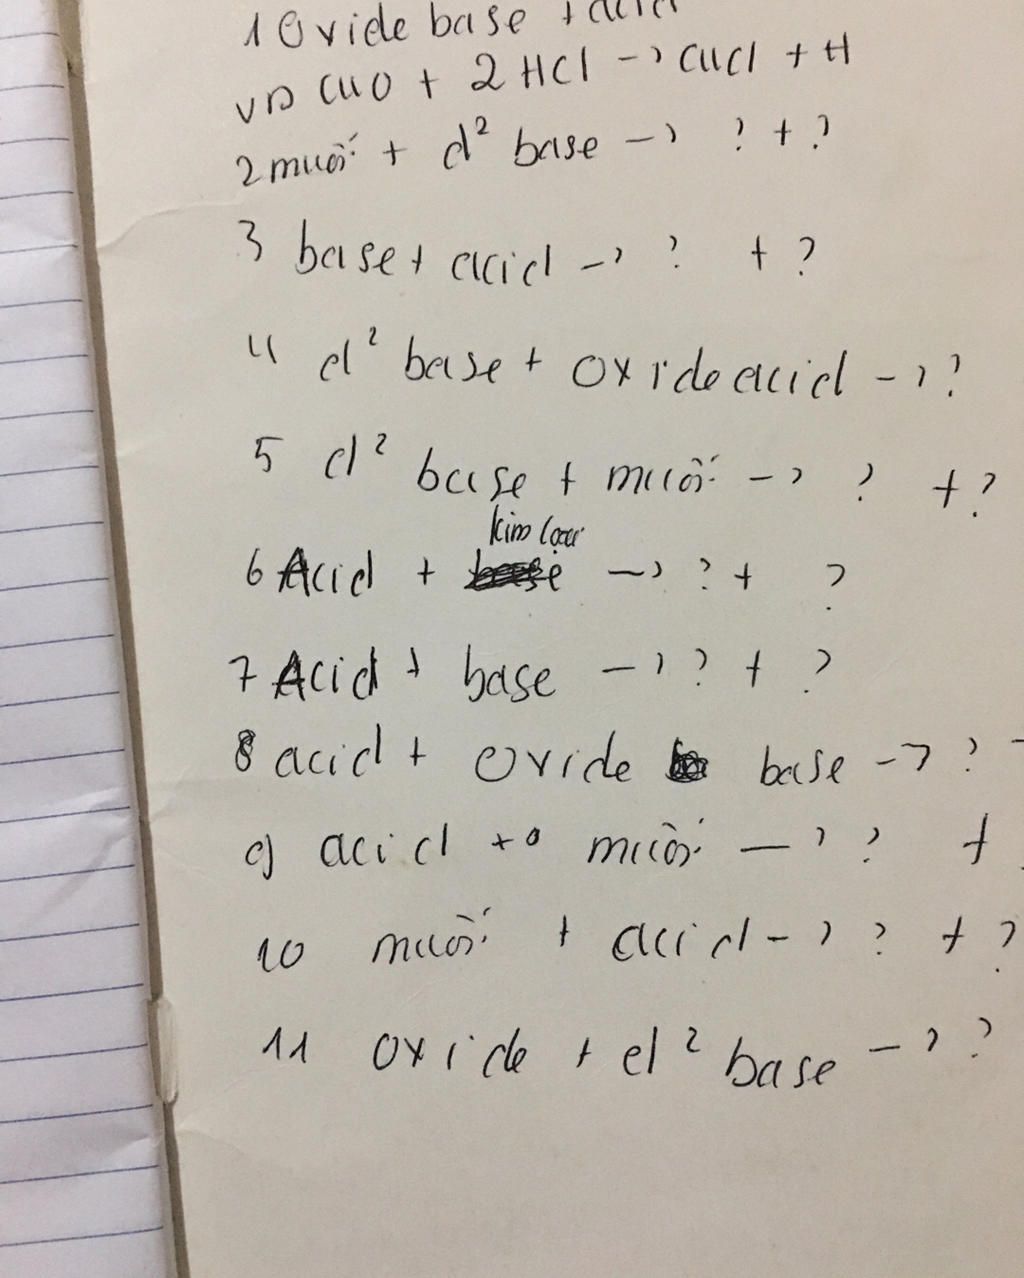 1 Oxide base + acid
VD CuO + 2HCl -> CuCl + H
2 muối + d² base -> ? + ?
3 base + acid -> ? + ?
4 d² base + oxide acid -> ?
5 d² base + muối -> ? + ?
kim loại
6 Acid + -> ? + ?
7 Acid + base -> ? + ?
8 acid + oxide base -> ?
9 acid + muối -> ? +
10 muối + acid -> ? + ?
11 oxide + d² base -> ?